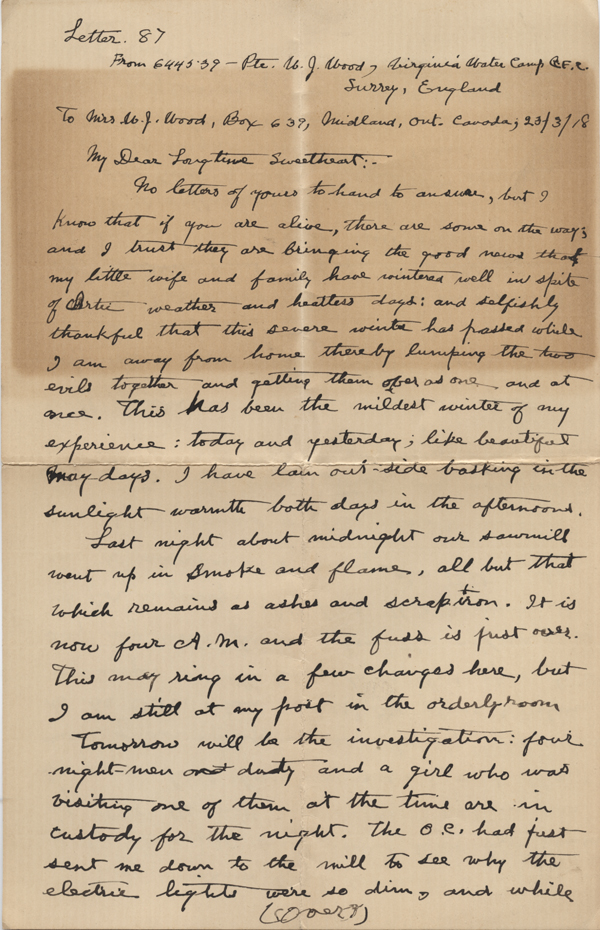 Letter. 87
From 644539 - Pte. W. J. Wood, Virginia Water Camp C.F.C.
Surrey, England
To Mrs W. J. Wood, Box 639, Midland, Ont. Canada; 23/3/18
My Dear Longtime Sweetheart:-
No letters of yours to hand to answer, but I
know that if you are alive, there are some on the way;
and I trust they are bringing the good news that
my little wife and family have wintered well in spite
of Artic weather and heatless days: and selfishly
thankful that this severe winter has passed while
I am away from home thereby lumping the two
evils together and getting them over as one and at
once. This has been the mildest winter of my
experience: today and yesterday; like beautiful
May days. I have lain out-side basking in the
sunlight warmth both days in the afternoons.
Last night about midnight our sawmill
went up in smoke and flame, all but that
which remains as ashes and scrap iron. It is
now four A.M. and the fuss is just over.
This may ring in a few changes here, but
I am still at my post in the orderlyroom
Tomorrow will be the investigation: four
night-men on duty and a girl who was
visiting one of them at the time are in
custody for the night. The O.C. had just
sent me down to the mill to see why the
electric lights were so dim, and while
(over)